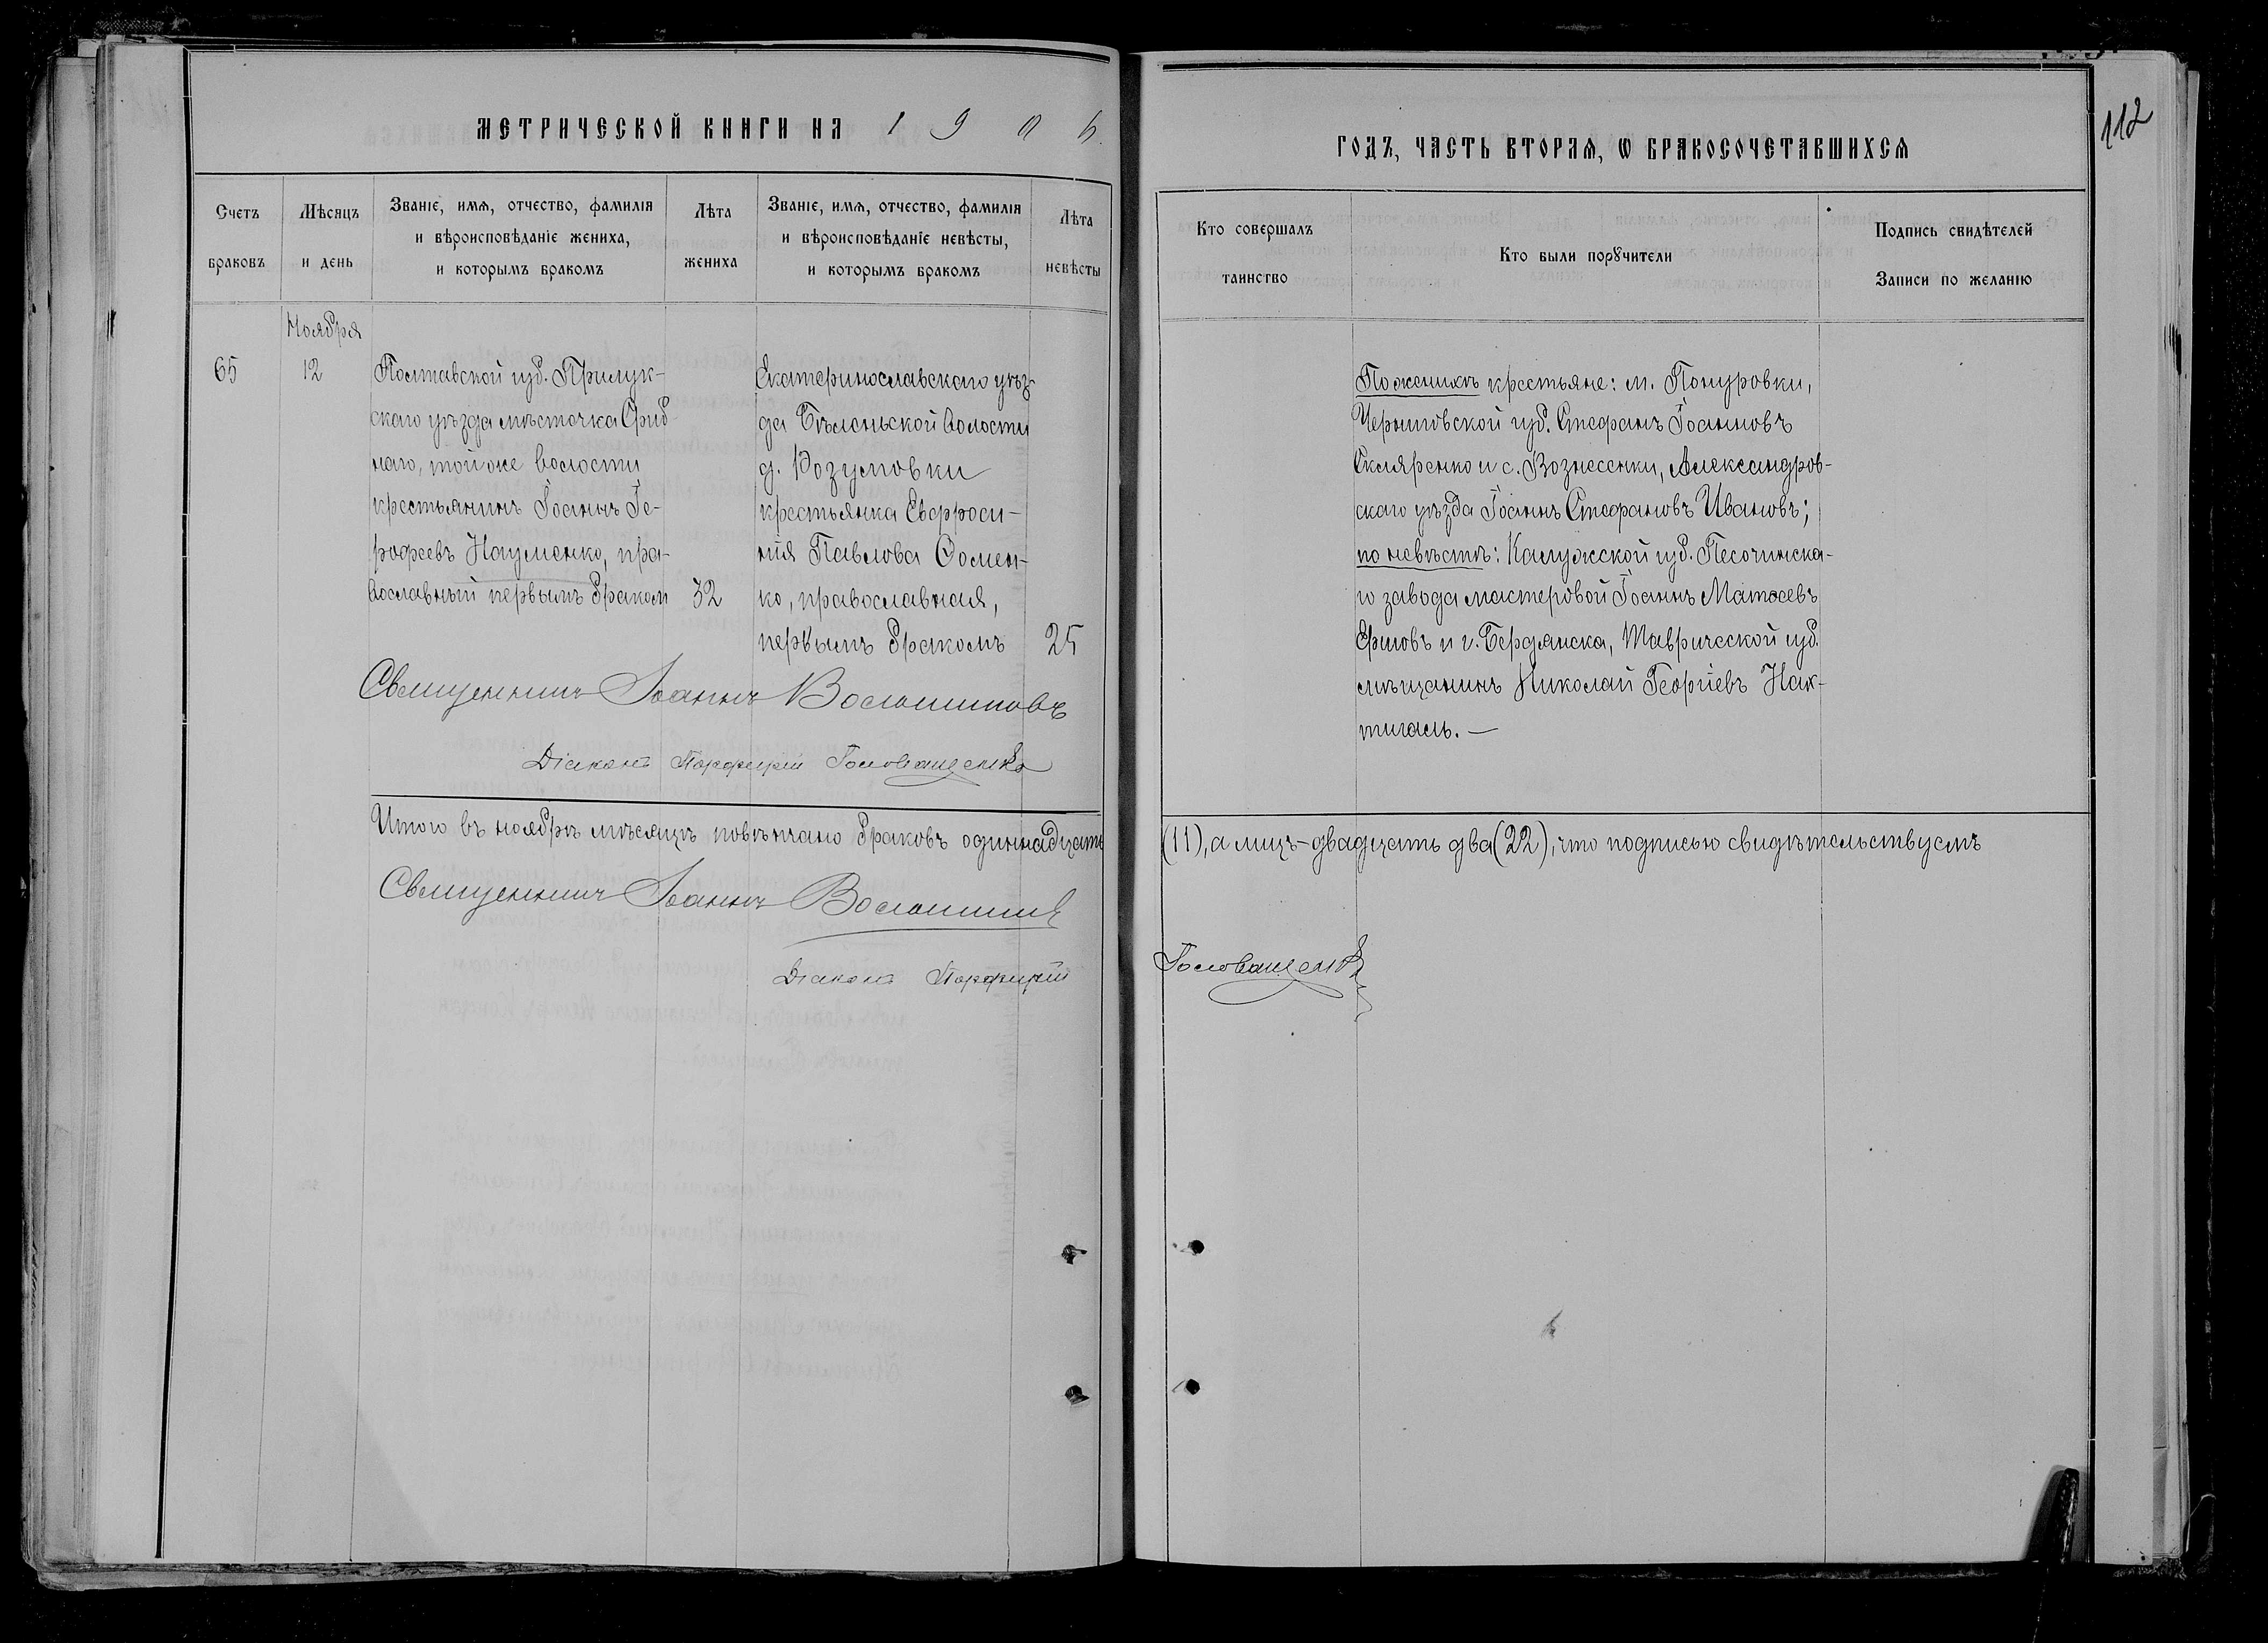 МЕТРИЧЕСКОЙ КНИГИ НА 1906
ГОДЪ, ЧАСТЬ ВТОРАЯ, Ѡ БРАКОСОЧЕТАВШИХСЯ
112
Счетъ браковъ
Мѣсяцъ и день
Званіе, имя, отчество, фамилія
и вѣроисповѣданіе жениха,
и которымъ бракомъ
Лѣта жениха
Званіе, имя, отчество, фамилія
и вѣроисповѣданіе невѣсты,
и которымъ бракомъ
Лѣта невѣсты
Кто совершалъ
таинство
Кто были порꙋчители
Подпись свидѣтелей
Записи по желанію
Ноября
65
12
Полтавской губ. Прилук-
скаго уѣзда мѣстечка Сриб-
наго, той же волости
крестьянинъ Іоаннъ Іе-
рофеевъ Науменко, пра-
вославный первымъ браком
32
Екатеринославскаго уѣз-
да Бѣленьской волости
д. Розумовки
крестьянка Евфроси-
нія Павлова Ѳомен-
ко, православная,
первымъ бракомъ
25
Священникъ Іоаннъ Волошиновъ
Діаконъ Порфирій Головащенко
По женихѣ крестьяне: м. Понуровки,
Черниговской губ. Стефанъ Іоанновъ
Скляренко и с. Вознесенки, Александров-
скаго уѣзда Іоаннъ Стефановъ Ивановъ;
по невѣстѣ: Калужской губ. Песочинска-
го завода мастеровой Іоаннъ Матѳеевъ
Ершовъ и г. Бердянска, Таврической губ.
мѣщанинъ Николай Георгіевъ Нак-
тигаль. —
Итого въ ноябрѣ мѣсяцѣ повѣнчано браковъ одиннадцать
(11), а лицъ-двадцать два (22), что подписью свидѣтельствуемъ
Священникъ Іоаннъ Волошинов
Діаконъ Порфирій
Головащенко